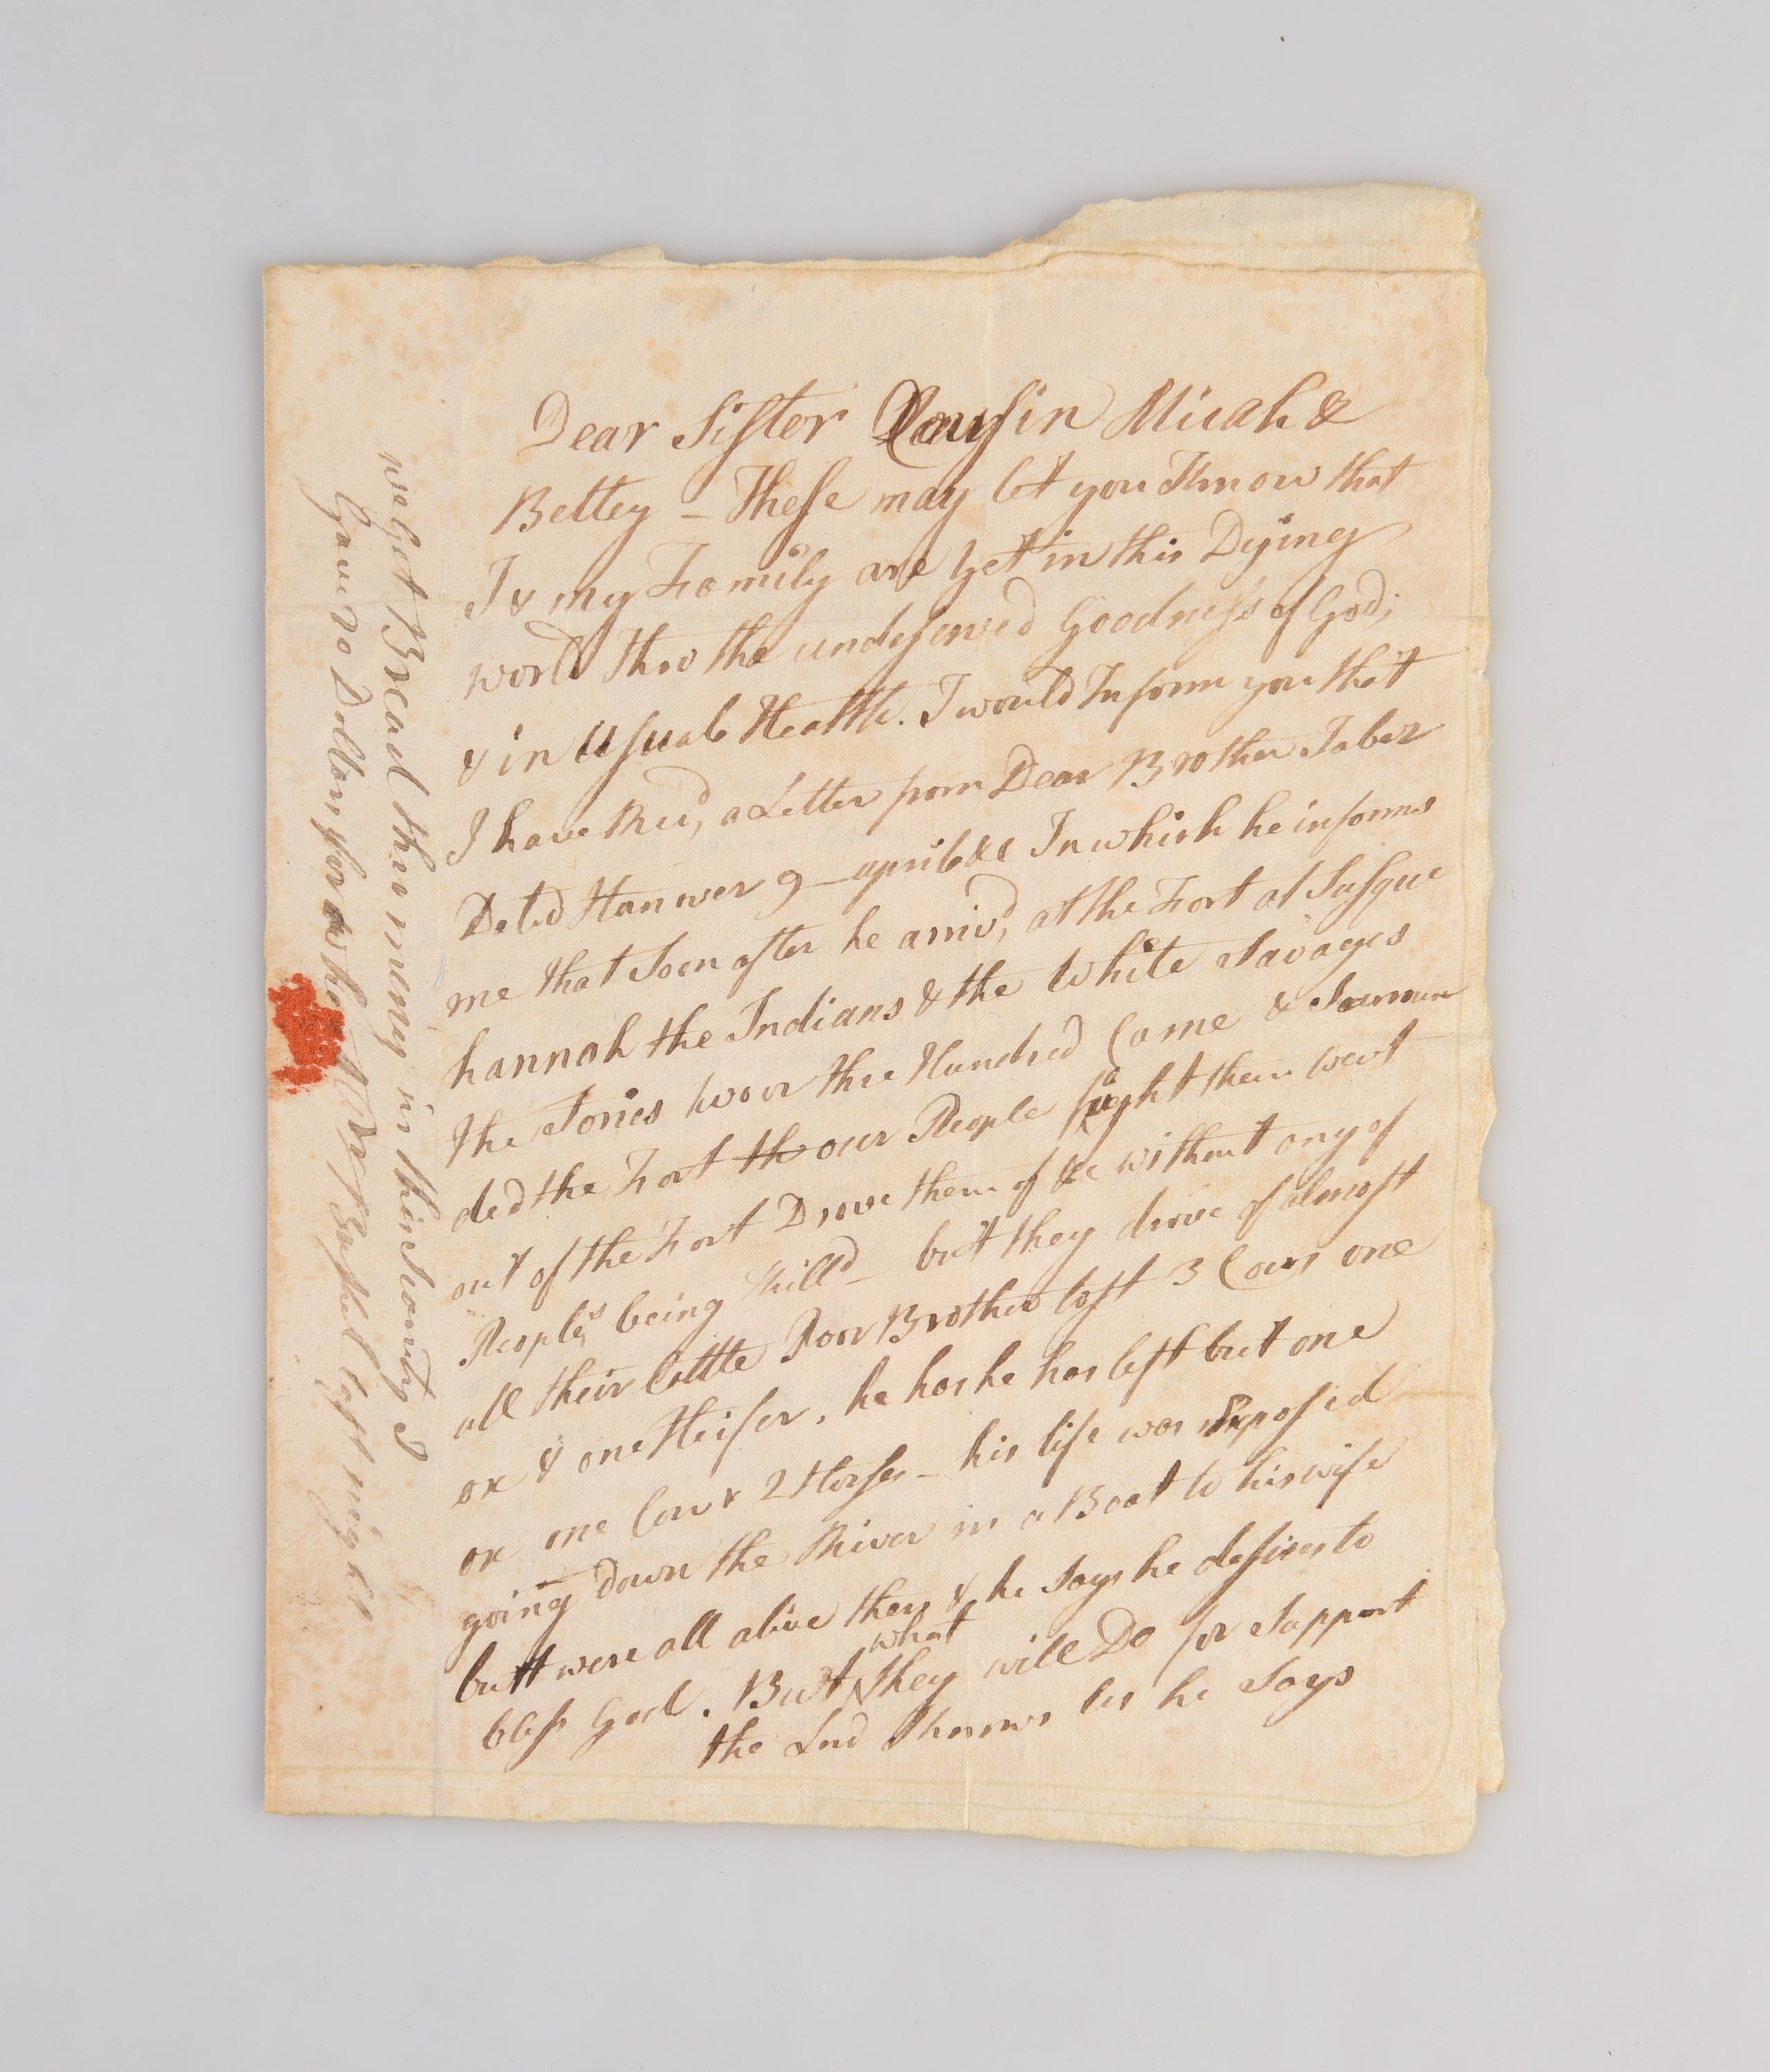 Dear Sister Cousin Micah &
Bettey - These may let you Know that
I & my Family are yet in this Dying
world thro the undeserved Goodness of God;
& in Usual Health. I would Inform you that
I have Recd, a Letter from Dear Brother Jabez
Dated Hanover 9 - april &c In which he informs
me that Soon after he arrivd, at the Fort at Susque
hannah the Indians & the White Savages
the Tories hoour thre Hundred Came & Surroun
ded the Fort th our People fought them went
out of the Fort Drove them of &c without any of
Peoples being Killd - but they drove of almost
all their Cattle Poor Brother lost 3 Cows one
ox & one Heifer, he has he has left but one
ox one Cow & 2 Horses - his life was Exposed
going down the River in a Boat to his wife
butt were all alive then & he says he desires to
bless God. But what they will Do for Support
the Lord Knows as he Says
we Get Bread this many in this County I
Gave 70 Dollars for a
last night